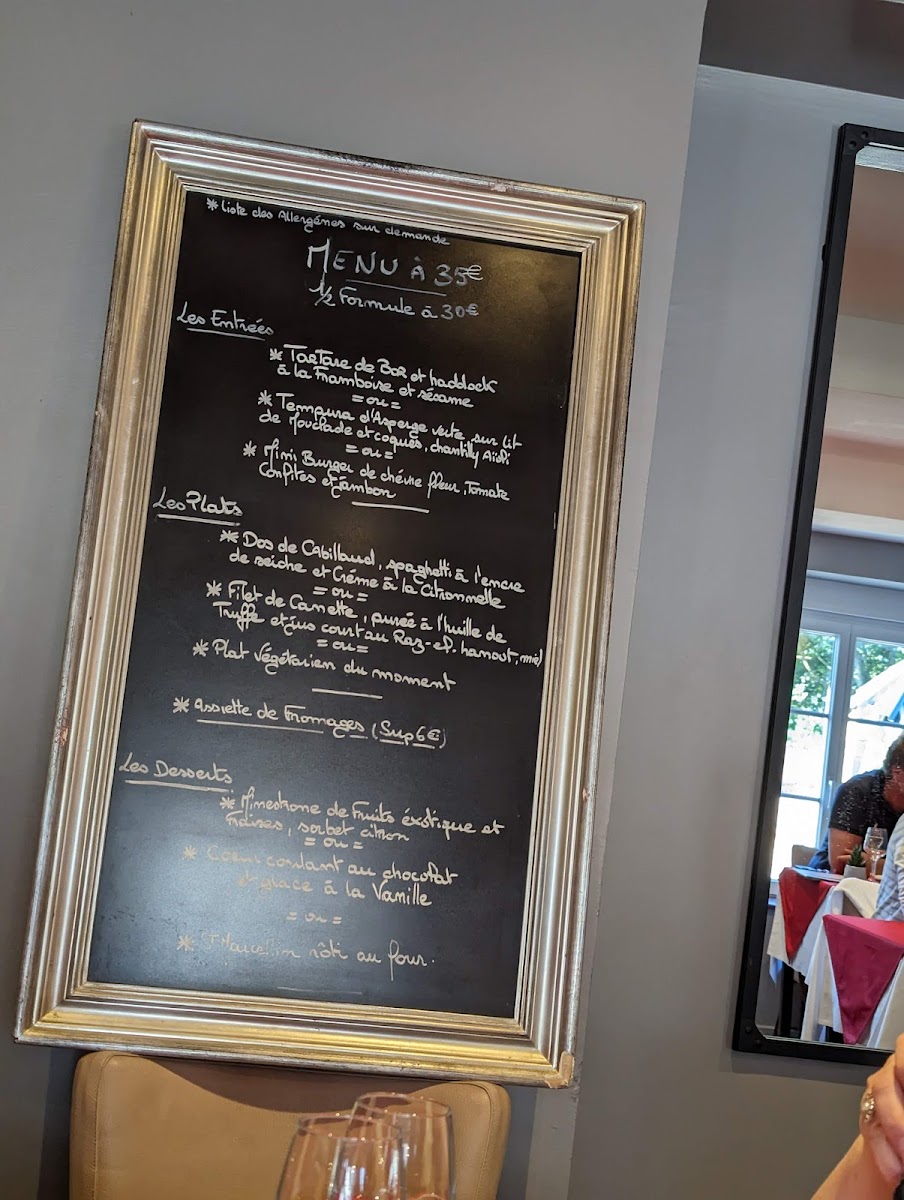 *Liste des Allergénes sur demande
MENU À 35€
1/2 Formule à 30€
Les Entrées
* Tartare de Bar et haddock
à la Framboise et sésame
= ou =
* Tempura d'Asperge verte, sur lit
de Mouclade et coques, chantilly Aïoli
= ou =
* Mini Burger de chévre fleur, Tomate
Confites et jambon
Les Plats
* Dos de Cabillaud, spaghetti à l'encre
de seiche et Crème à la Citronnelle
= ou =
* Filet de Canette, purée à l'huile de
Truffe et jus court au Raz-el-hanout, miel
= ou =
* Plat végétarien du moment
* Assiette de Fromages (Sup 6€)
Les Desserts
* Minestrone de Fruits éxotique et
Fraises, sorbet citron
= ou =
* Coeur coulant au chocolat
et glace à la Vanille
= ou =
* St Marcellin rôti au four.